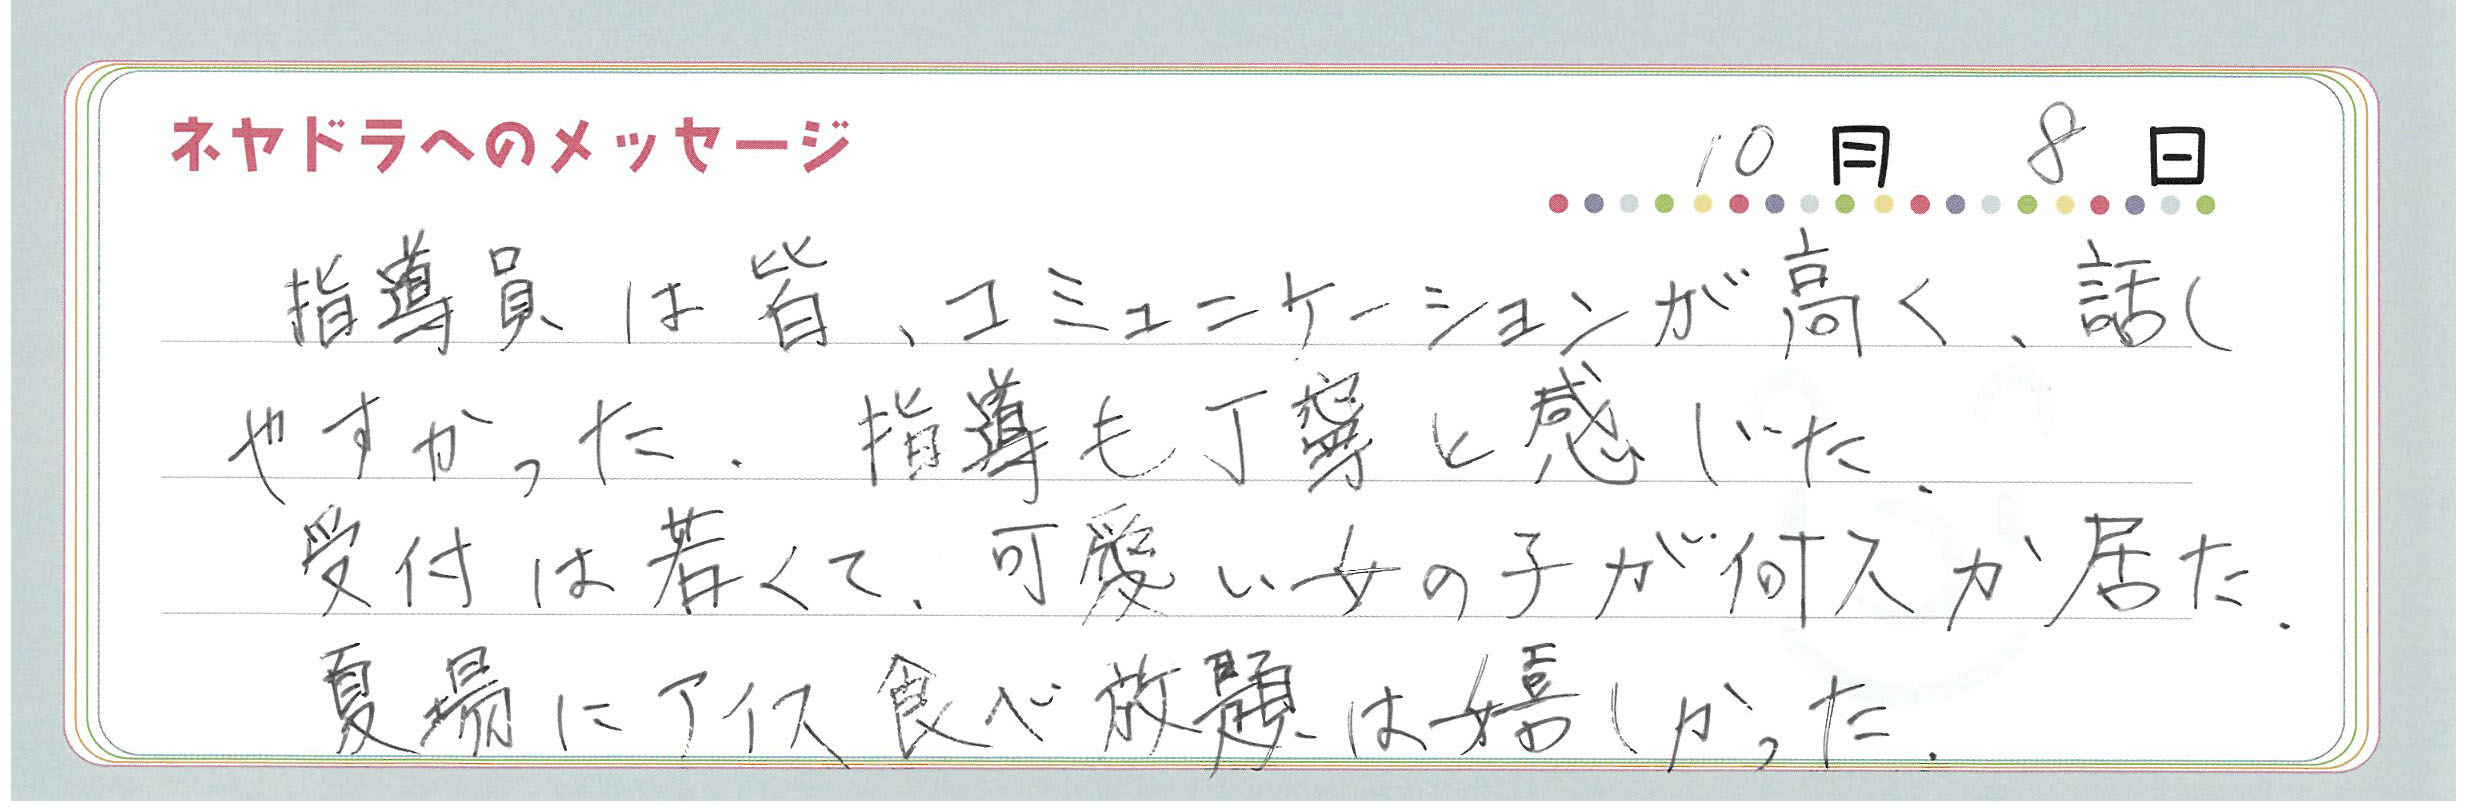 ネヤドラへのメッセージ
10月 8日
指導員は皆、コミュニケーションが高く、話し
やすかった. 指導も丁寧と感じた.
受付は若くて、可愛い女の子が何人か居た.
夏場にアイス食べ放題は嬉しかった.